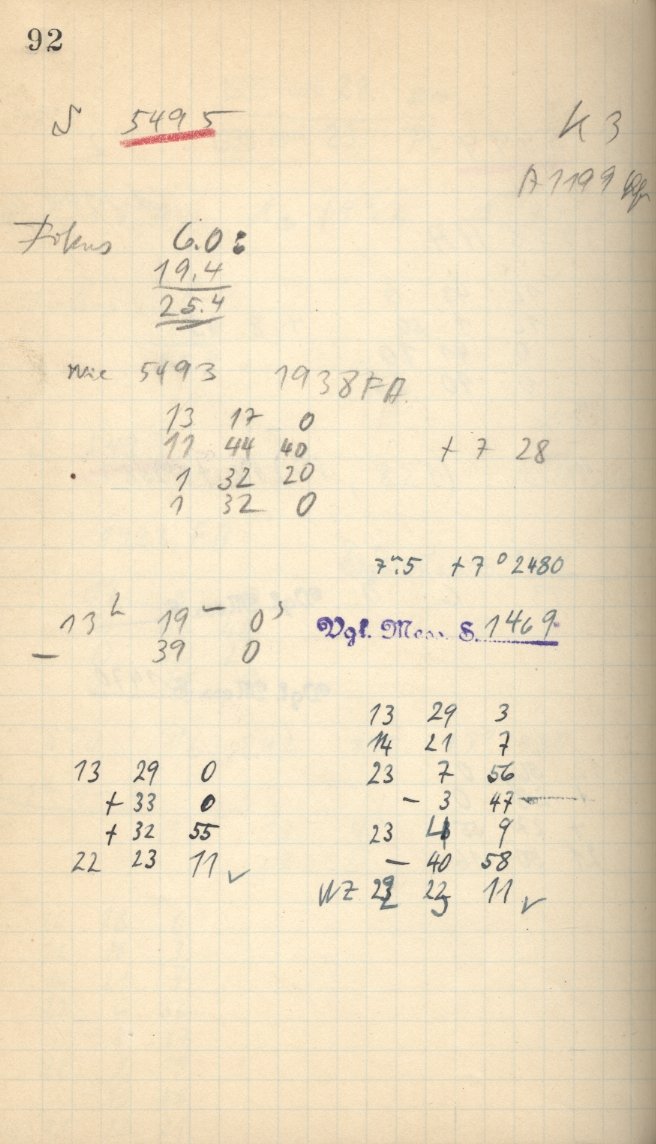 92
5495
K 3
A 1199
Fokus 6.0:
19.4
25.4
wie 5493 1938 FA
13 17 0
11 44 40 + 7 28
1 32 20
1 32 0
7ᵐ.5 + 7° 2480
13ʰ 19ᵐ 0ˢ
Vgl. Mess. S. 1469
− 39 0
13 29 3
14 21 7
13 29 0
23 7 56
+ 33 0
− 3 47
+ 32 55
23 4 9
22 23 11 ✓
− 40 58
WZ 22 23 11 ✓